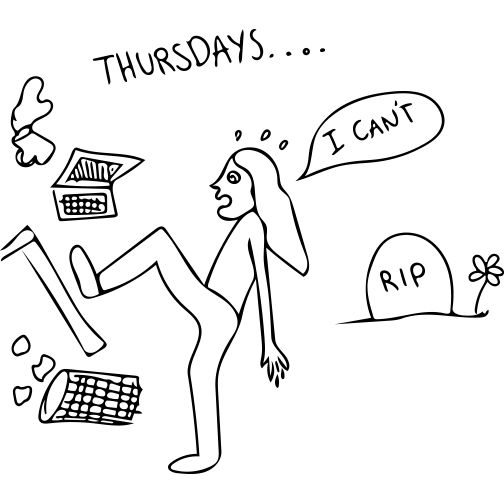 THURSDAYS....
I CAN'T
RIP